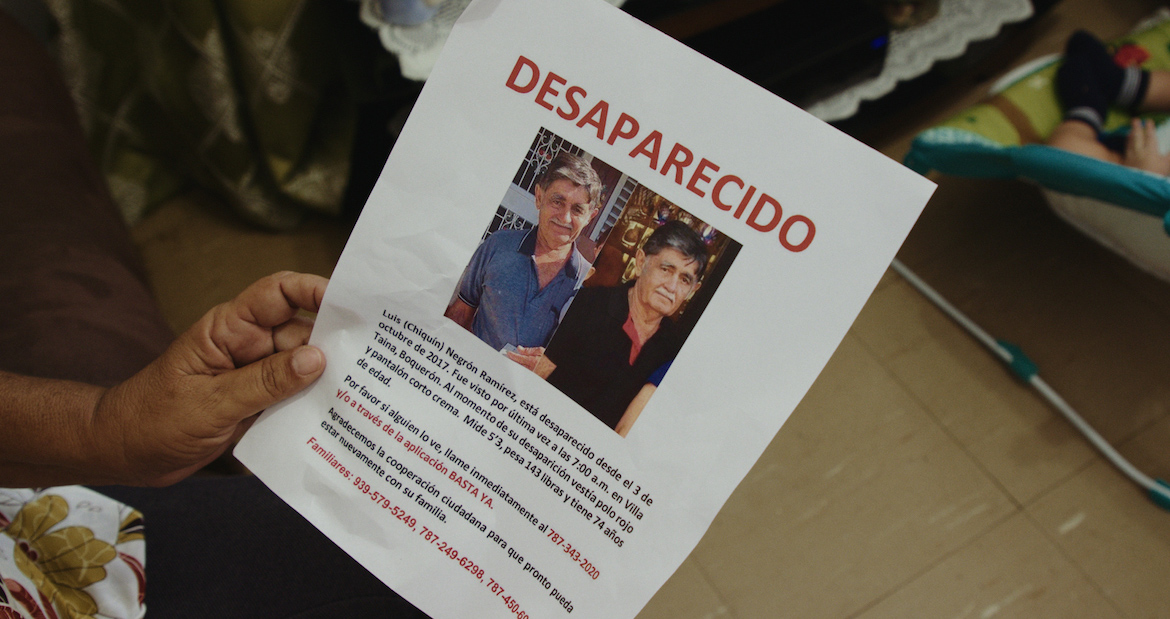 DESAPARECIDO
Luis (Chiquín) Negrón Ramírez, está desaparecido desde el 3 de
octubre de 2017. Fue visto por última vez a las 7:00 a.m. en Villa
Taina, Boquerón. Al momento de su desaparición vestía polo rojo
y pantalón corto crema. Mide 5'3, pesa 143 libras y tiene 74 años
de edad.
Por favor si alguien lo ve, llame inmediatamente al 787-343-2020
y/o a través de la aplicación BASTA YA.
Agradecemos la cooperación ciudadana para que pronto pueda
estar nuevamente con su familia.
Familiares: 939-579-5249, 787-249-6298,